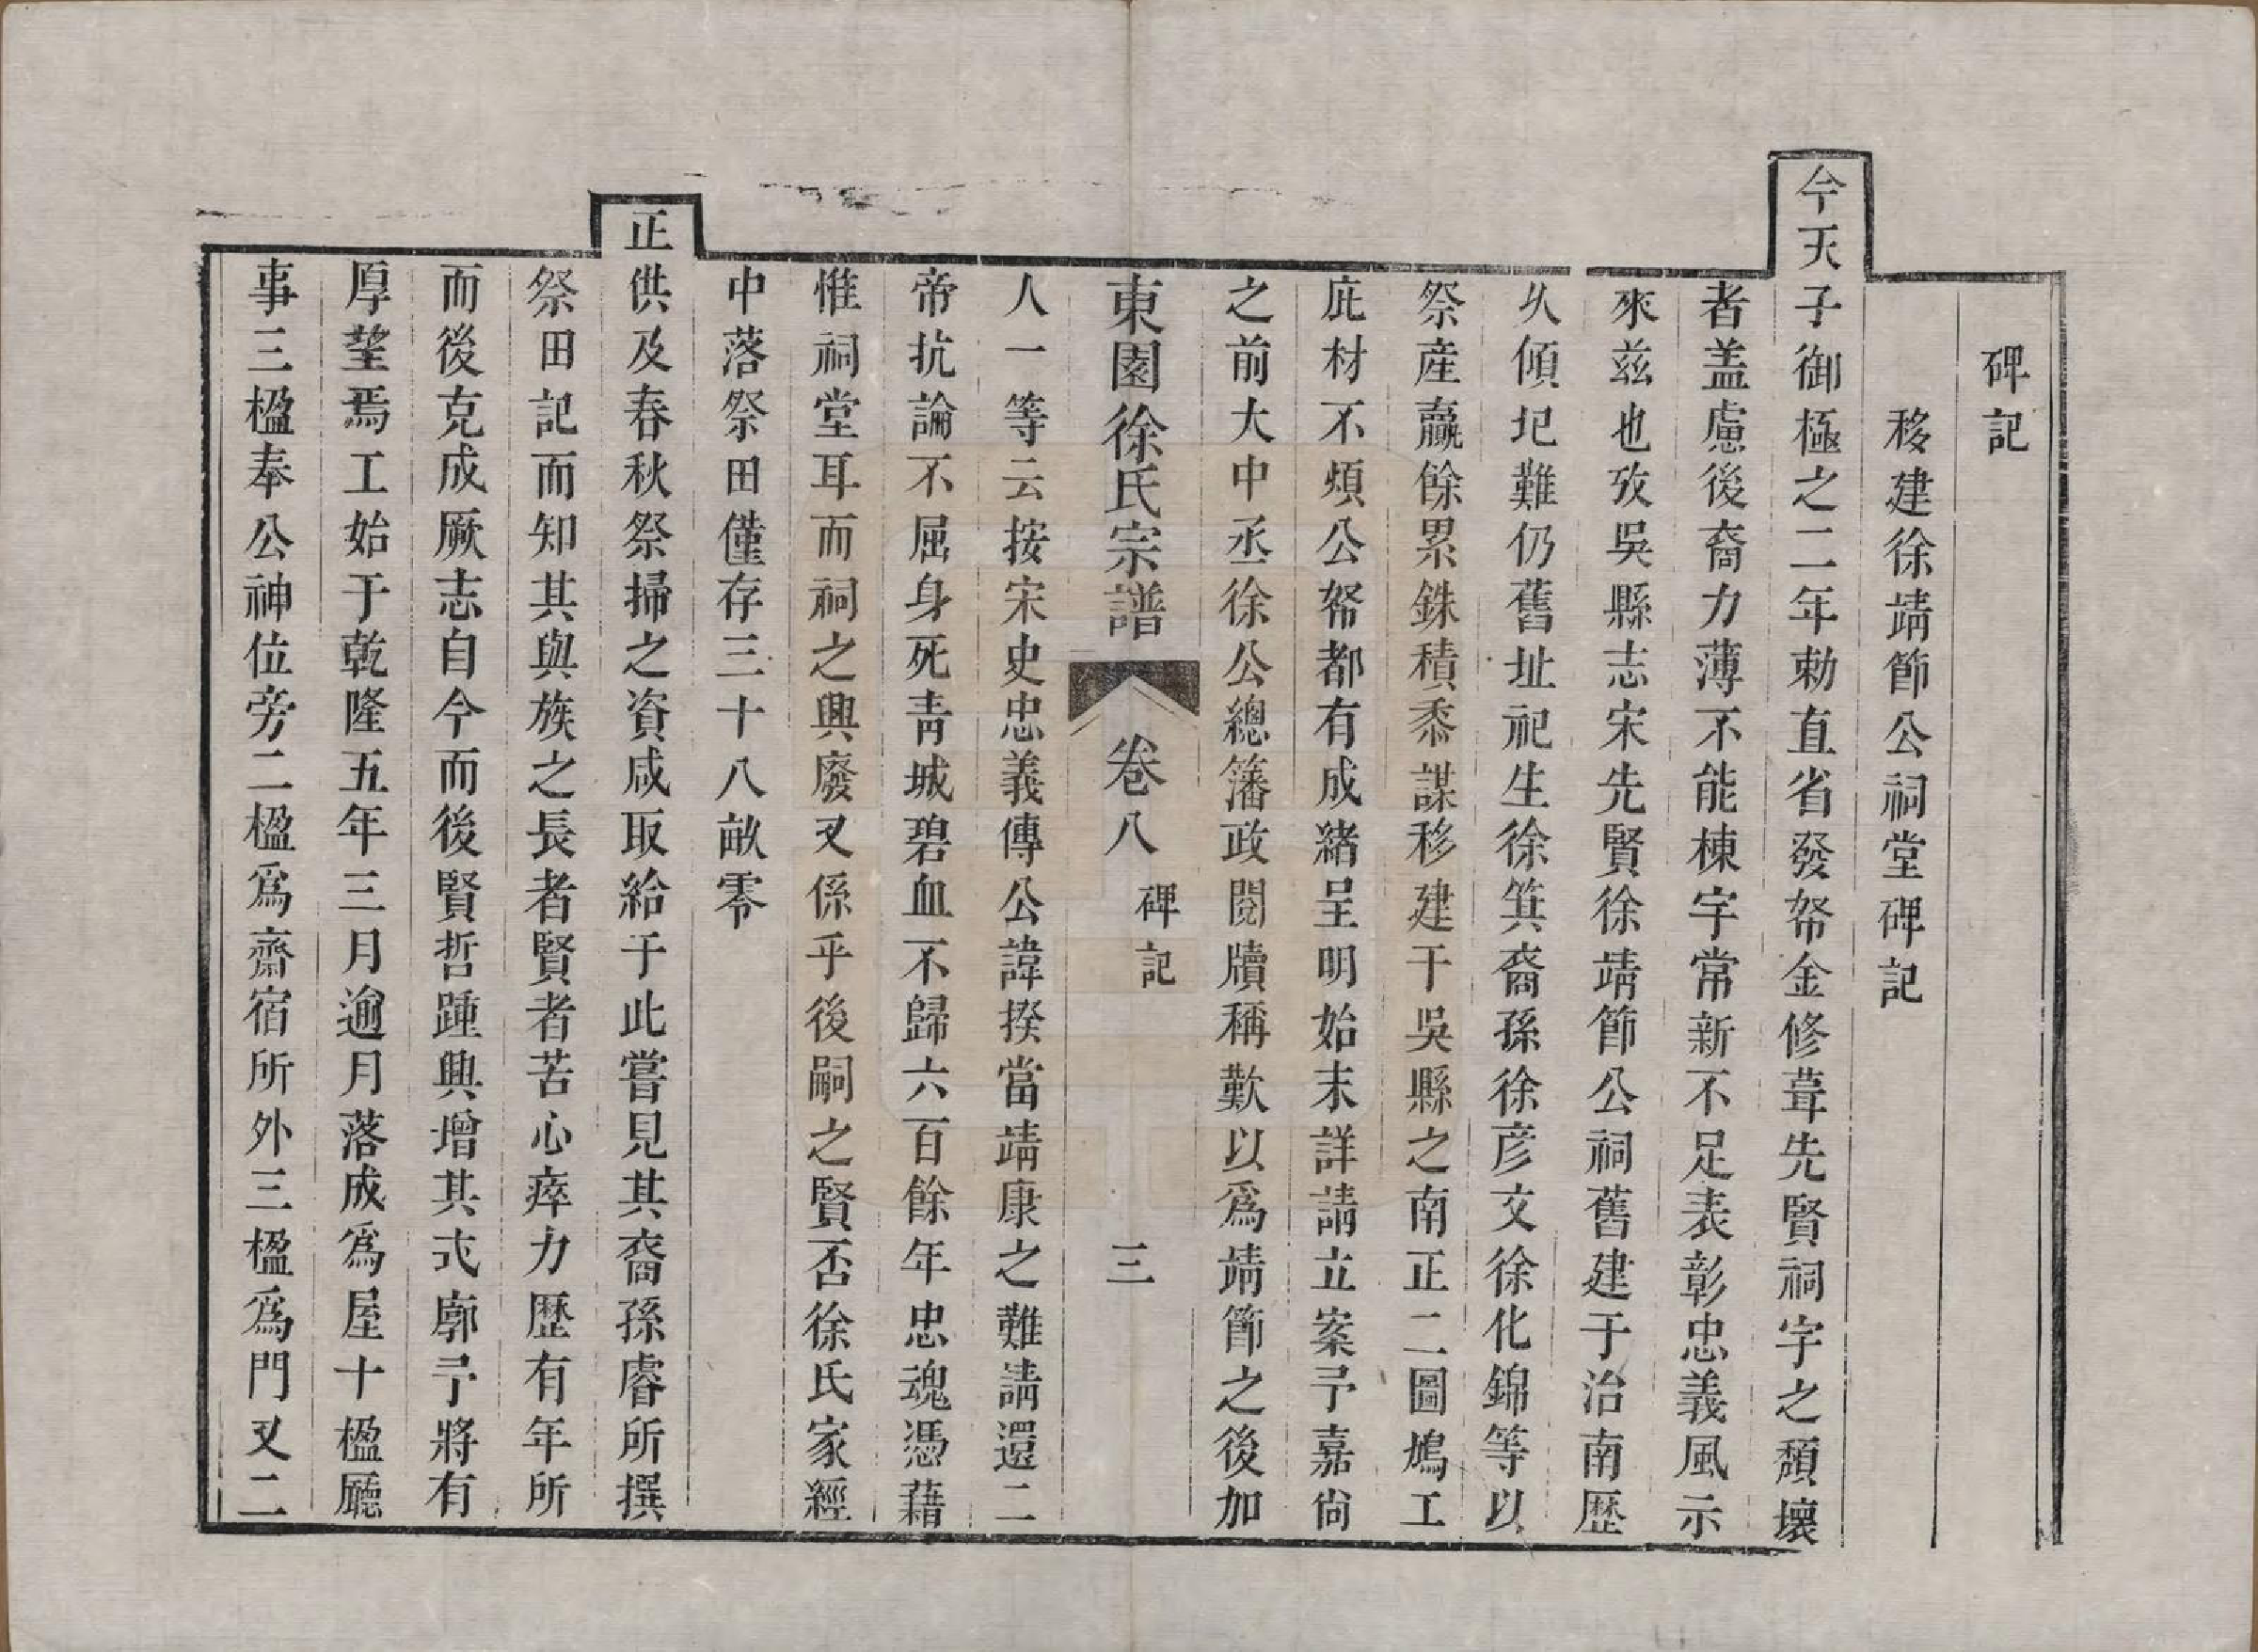 碑記
移建徐靖節公祠堂碑記
今天子御極之二年勅直省發帑金修葺先賢祠宇之頹壞
者盖慮後裔力薄不能棟宇常新不足表彰忠義風示
來茲也攷吳縣志宋先賢徐靖節公祠舊建于治南歷
久傾圮難仍舊址祀生徐箕裔孫徐彦文徐化錦等以
祭産贏餘累銖積黍謀移建于吳縣之南正二圖鳩工
庇材不煩公帑都有成緒呈明始末詳請立案予嘉尚
之前大中丞徐公總藩政閱牘稱歎以爲靖節之後加
東園徐氏宗譜 卷八 碑記 三
人一等云按宋史忠義傳公諱揆當靖康之難請還二
帝抗論不屈身死靑城碧血不歸六百餘年忠魂憑藉
惟祠堂耳而祠之興廢又係乎後嗣之賢否徐氏家經
中落祭田僅存三十八畝零
正供及春秋祭掃之資咸取給于此嘗見其裔孫睿所撰
祭田記而知其與族之長者賢者苦心瘁力歷有年所
而後克成厥志自今而後賢哲踵興增其式廓予將有
厚望焉工始于乾隆五年三月逾月落成爲屋十楹廳
事三楹奉公神位旁二楹爲齋宿所外三楹爲門又二